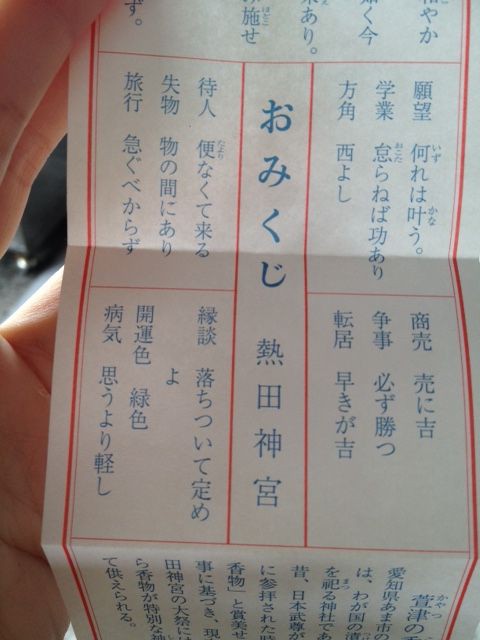 和やか
如く今
来あり。
み施せ
ず。
願望 何れは叶う。
学業 怠らねば功あり
方角 西よし
商売 売に吉
争事 必ず勝つ
転居 早きが吉
おみくじ 熱田神宮
待人 便なくて来る
失物 物の間にあり
旅行 急ぐべからず
縁談 落ちついて定め
よ
開運色 緑色
病気 思うより軽し
萱津の
愛知県あま市の
は、わが国の漬
を祀る神社であ
昔、日本武尊が
に参拝された時
香物」と賞美せ
事に基づき、現
田神宮の大祭には
ら香物が特別な神
て供えられる。